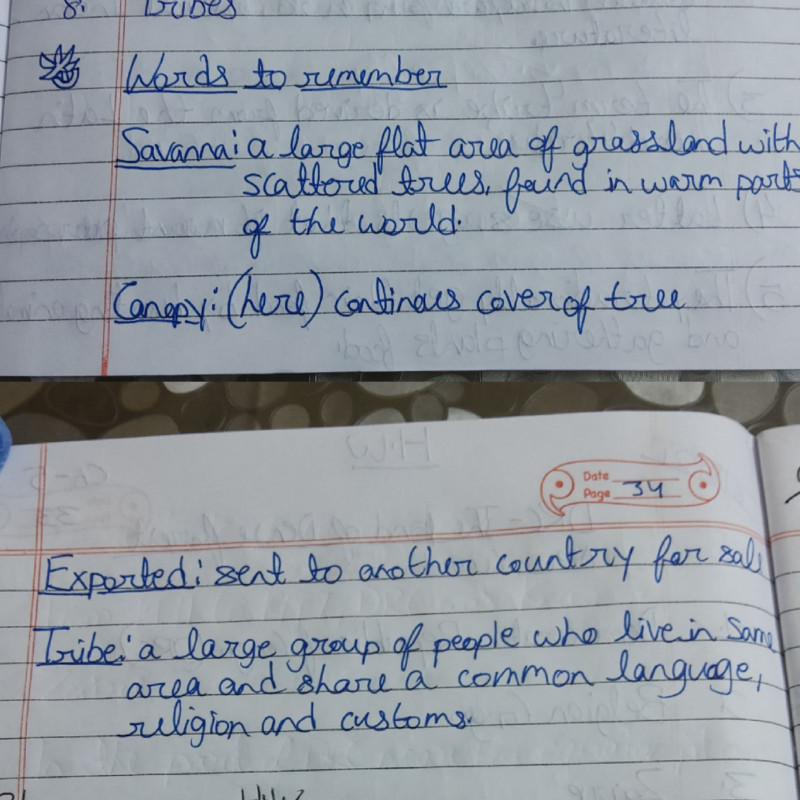 8. Tribes
Words to remember
Savanna: a large flat area of grassland with
scattored trees, found in warm parts
of the world.
Canopy: (here) continous cover of tree
Date
Page 34
Exported: sent to another country for sale
Tribe: a large group of people who live in same
area and share a common language,
religion and customs.